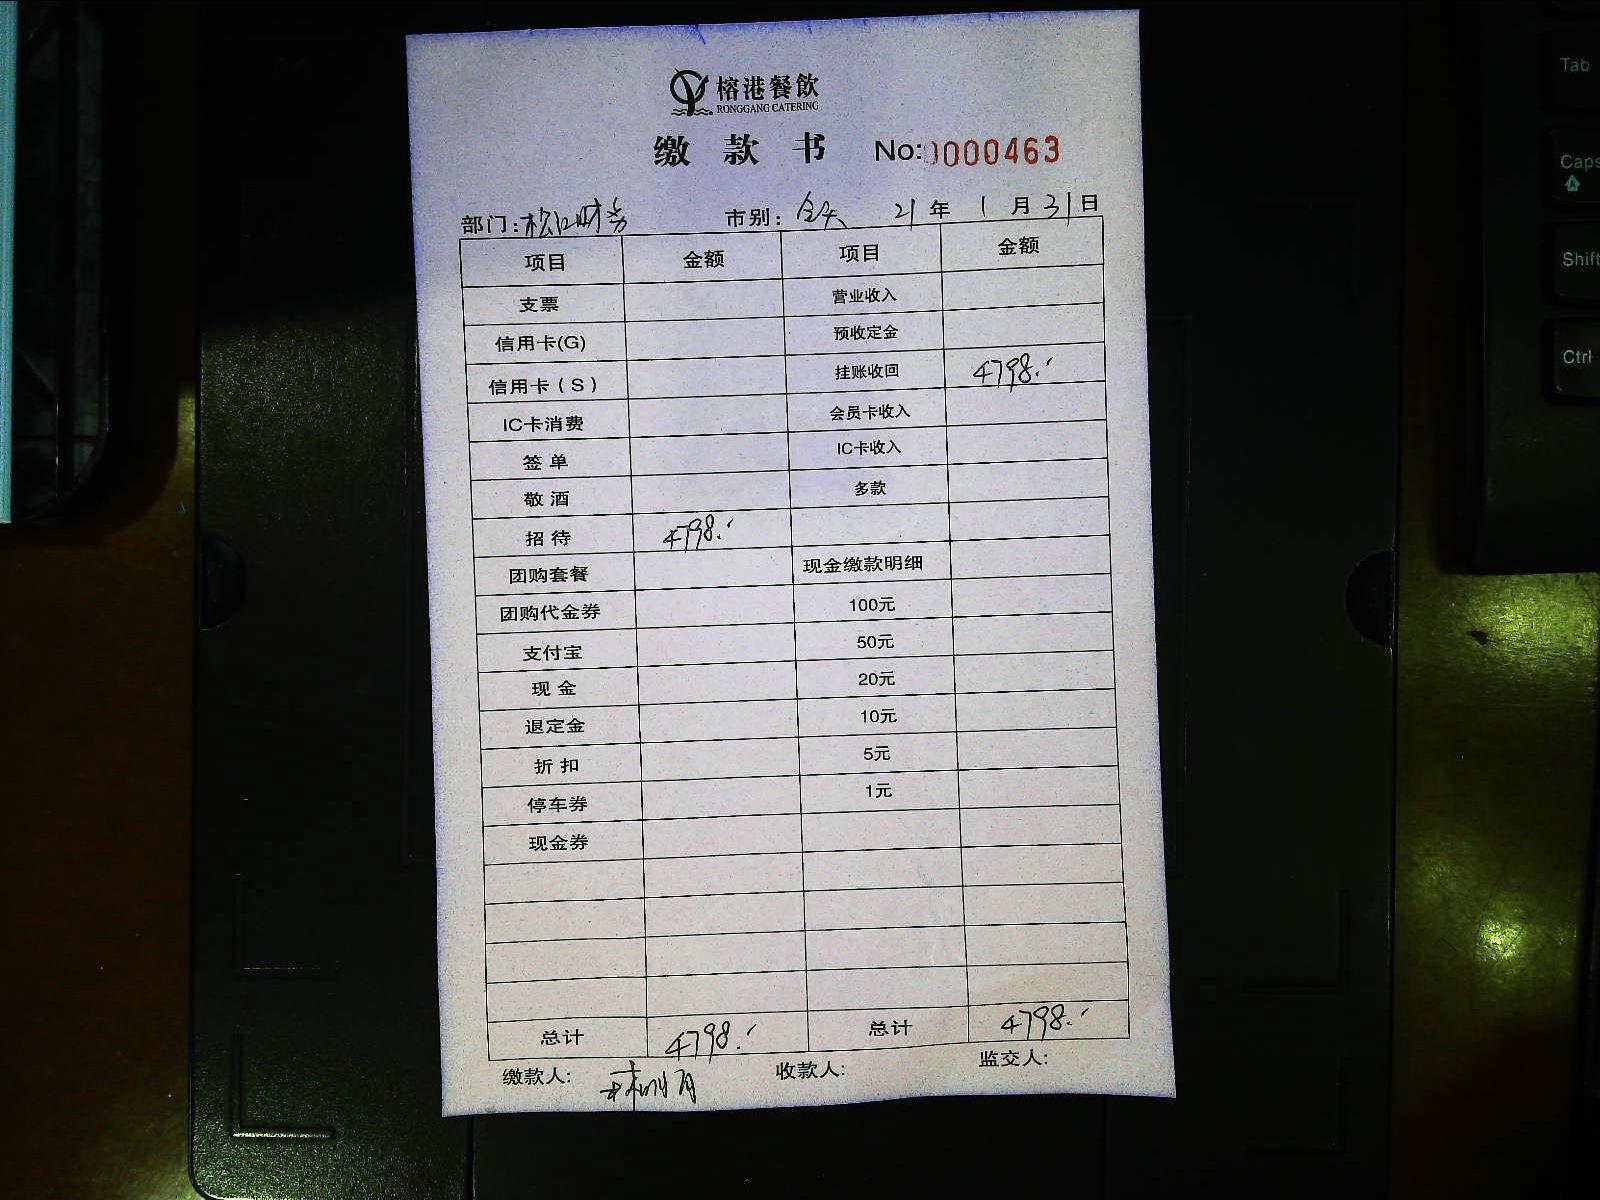 榕港餐飲
RONGGANG CATERING
缴款书 No:0000463
部门:松江财务 市别:全天 21年1月31日
项目 金额 项目 金额
支票 营业收入
信用卡(G) 预收定金
信用卡(S) 挂账收回 4798.
IC卡消费 会员卡收入
签单 IC卡收入
敬酒 多款
招待 4798.
团购套餐 现金缴款明细
团购代金券 100元
支付宝 50元
现金 20元
退定金 10元
折扣 5元
停车券 1元
现金券
总计 4798. 总计 4798.
缴款人: 收款人: 监交人:
Tab
Caps
Shift
Ctrl